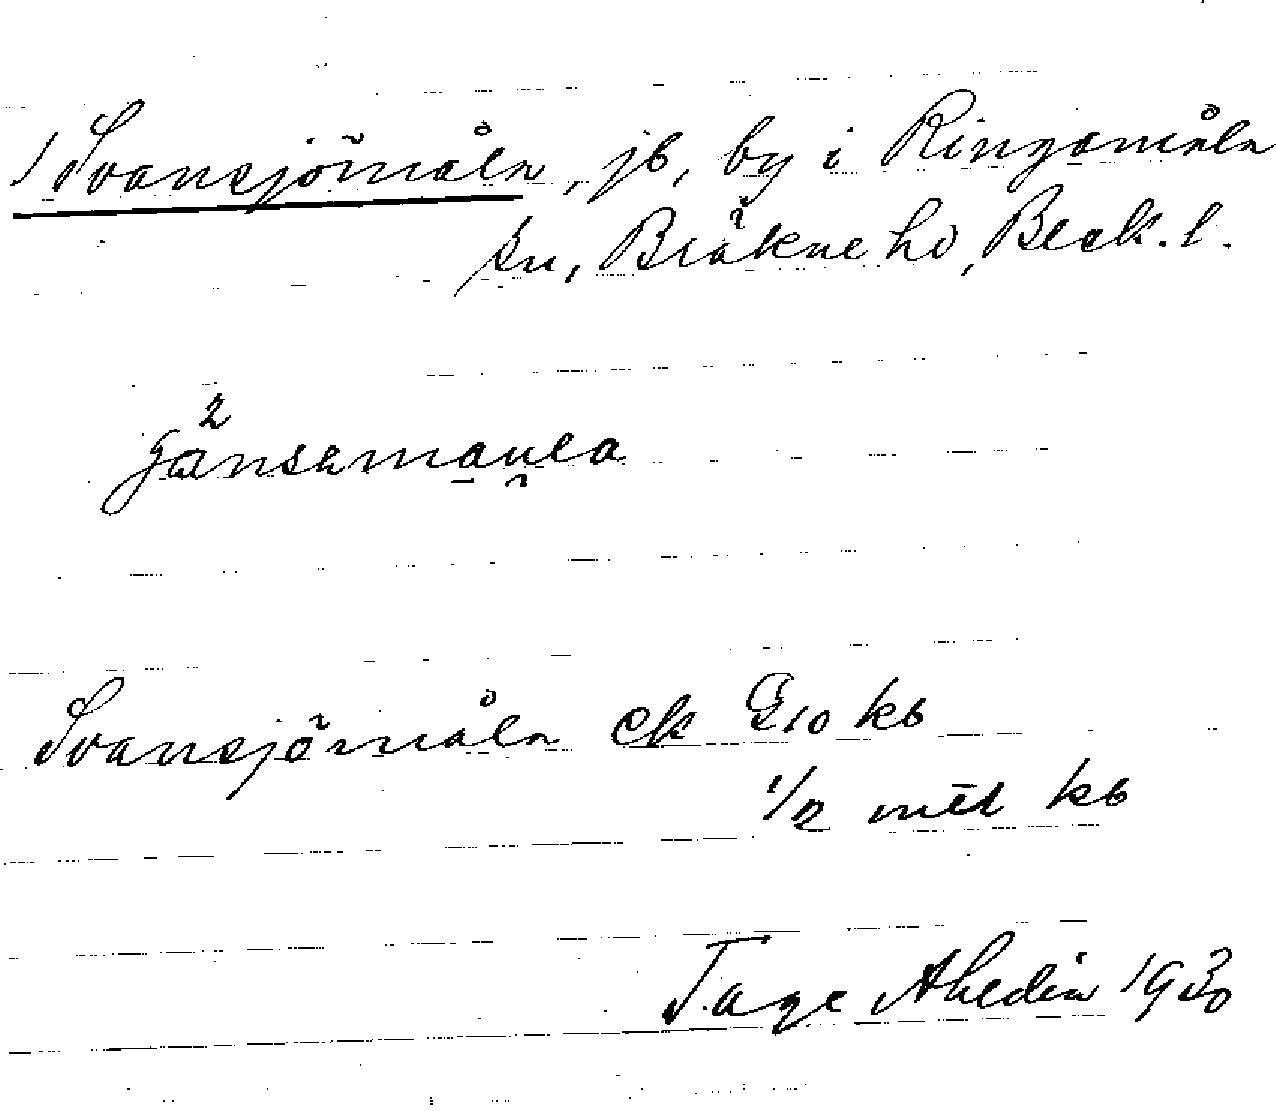 1 Svansjömåla, jb, by i Ringamåla
sn, Bräkne hd, Blek. l.
Svansjömåla ek E10 kb
1/2 mtl kb
Tage Ahldin 1930